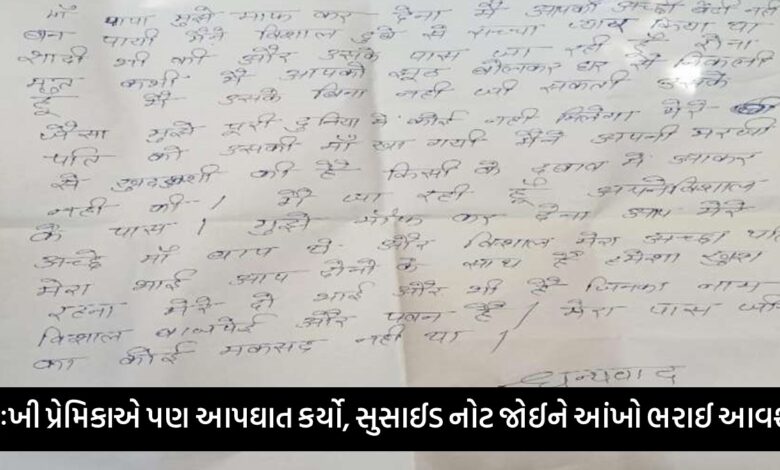 माँ पापा मुझे माफ कर देना मैं आपकी अच्छी बेटी नही
बन पायी मैंने विशाल दुबे से सच्चा प्यार किया था
शादी भी की और उसके पास जा रही हूँ रोना
मत कभी मैं आपको झूठ बोलकर घर से निकली
हूँ मैं उसके बिना नही जी सकती उसके
जैसा मुझे पूरी दुनिया में कोई नही मिलेगा मेरे
पति को उसकी माँ खा गयी मैंने अपनी मरजी
से खुदकुशी की है किसी के दबाव में आकर
नही की। मैं जा रही हूँ अपने विशाल
के पास। मुझे माँफ कर देना आप मेरे
अच्छे माँ बाप थे और विशाल मेरा अच्छा
मेरा भाई आप दोनो के साथ है हमेशा खुश
रहना मेरे दो भाई और भी है जिनका नाम
विशाल बाजपेई और पवन है। मेरा पास
का कोई मकसद नही था।
धन्यवाद
ઃખી પ્રેમિકાએ પણ આપઘાત કર્યો, સુસાઈડ નોટ જોઈને આંખો ભરાઈ આવશ